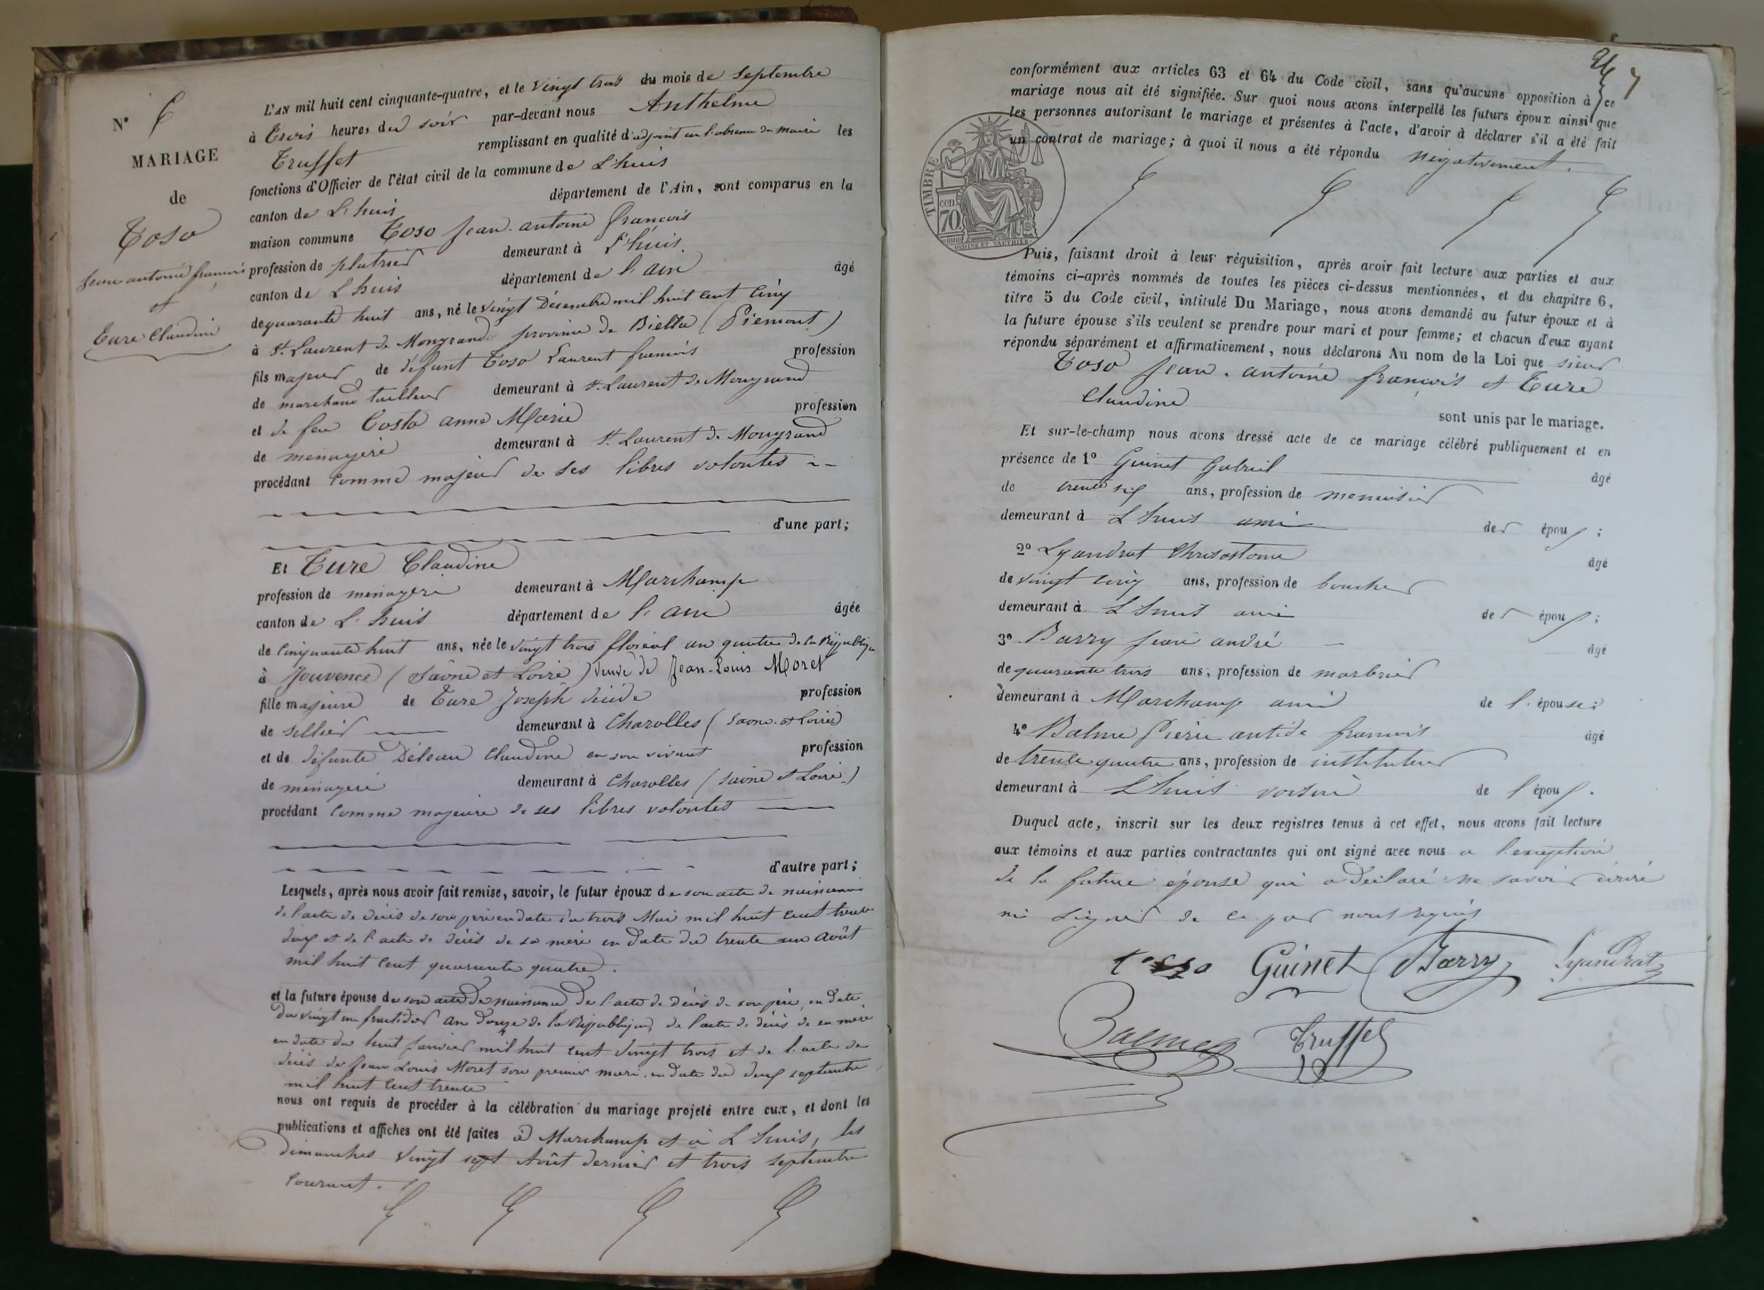 N° 6
MARIAGE
de
Toso
Jean antoine françois
et
Ture Claudine
L'AN mil huit cent cinquante-quatre, et le vingt trois du mois de Septembre
à trois heures du soir par-devant nous Anthelme
Truffet remplissant en qualité d'adjoint en l'absence du maire les
fonctions d'Officier de l'état civil de la commune de L'huis
canton de L'huis département de l'Ain, sont comparus en la
maison commune Toso Jean-antoine françois
profession de platrier demeurant à L'huis
canton de L'huis département de l'ain âgé
de quarante huit ans, né le vingt Décembre mil huit cent cinq
à St. Laurent de Mongrand province de Biella (Piémont)
fils majeur de défunt Toso Laurent françois profession
de marchand tailleur demeurant à St. Laurent de Mongrand
et de feu Costa anne Marie profession
de menagère demeurant à St. Laurent de Mongrand
procédant comme majeur de ses libres volontés
d'une part;
Et Ture Claudine
profession de menagère demeurant à Marchamp
canton de L'huis département de l'ain âgée
de Cinquante huit ans, née le vingt trois floréal an quatre de la République
à Jouvence (Saône et Loire) veuve de Jean-Louis Moret
fille majeure de Ture Joseph décédé profession
de sellier demeurant à Charolles (Saone et Loire)
et de défunte Deleau Claudine en son vivant profession
de menagère demeurant à Charolles (Saône et Loire)
procédant comme majeure de ses libres volontés
d'autre part;
Lesquels, après nous avoir fait remise, savoir, le futur époux de son acte de naissance
de l'acte de décès de son père en date du trois Mai mil huit cent trente
deux et de l'acte de décès de sa mère en date du trente un Août
mil huit cent quarante quatre.
et la future épouse de son acte de naissance de l'acte de décès de son père, en date
du vingt un fructidor an douze de la République, de l'acte de décès de sa mère
en date du huit janvier mil huit cent vingt trois et de l'acte de
décès de Jean Louis Moret son premier mari en date du deux septembre
mil huit cent trente
nous ont requis de procéder à la célébration du mariage projeté entre eux, et dont les
publications et affiches ont été faites à Marchamp et à L'huis, les
dimanches vingt sept Août dernier et trois septembre
courant.
7
conformément aux articles 63 et 64 du Code civil, sans qu'aucune opposition à ce
mariage nous ait été signifiée. Sur quoi nous avons interpellé les futurs époux ainsi que
les personnes autorisant le mariage et présentes à l'acte, d'avoir à déclarer s'il a été fait
un contrat de mariage; à quoi il nous a été répondu négativement.
TIMBRE
70
Puis, faisant droit à leur réquisition, après avoir fait lecture aux parties et aux
témoins ci-après nommés de toutes les pièces ci-dessus mentionnées, et du chapitre 6,
titre 5 du Code civil, intitulé Du Mariage, nous avons demandé au futur époux et à
la future épouse s'ils veulent se prendre pour mari et pour femme; et chacun d'eux ayant
répondu séparément et affirmativement, nous déclarons Au nom de la Loi que sieur
Toso Jean-antoine françois et Ture
Claudine
sont unis par le mariage.
Et sur-le-champ nous avons dressé acte de ce mariage célébré publiquement et en
présence de 1° Guinet Gabriel âgé
de trente six ans, profession de menuisier
demeurant à L'huis ami des époux;
2° Lyandrat Chrisostome âgé
de vingt cinq ans, profession de boucher
demeurant à L'huis ami des époux;
3° Barry Jean andré âgé
de quarante trois ans, profession de marbrier
demeurant à Marchamp ami de l'épouse;
4° Balme Pierre antide françois âgé
de trente quatre ans, profession de instituteur
demeurant à L'huis voisin de l'époux.
Duquel acte, inscrit sur les deux registres tenus à cet effet, nous avons fait lecture
aux témoins et aux parties contractantes qui ont signé avec nous à l'exception
de la future épouse qui a déclaré ne savoir écrire
ni signer de ce par nous requis
Guinet Barry Lyandrat
Balme Truffet